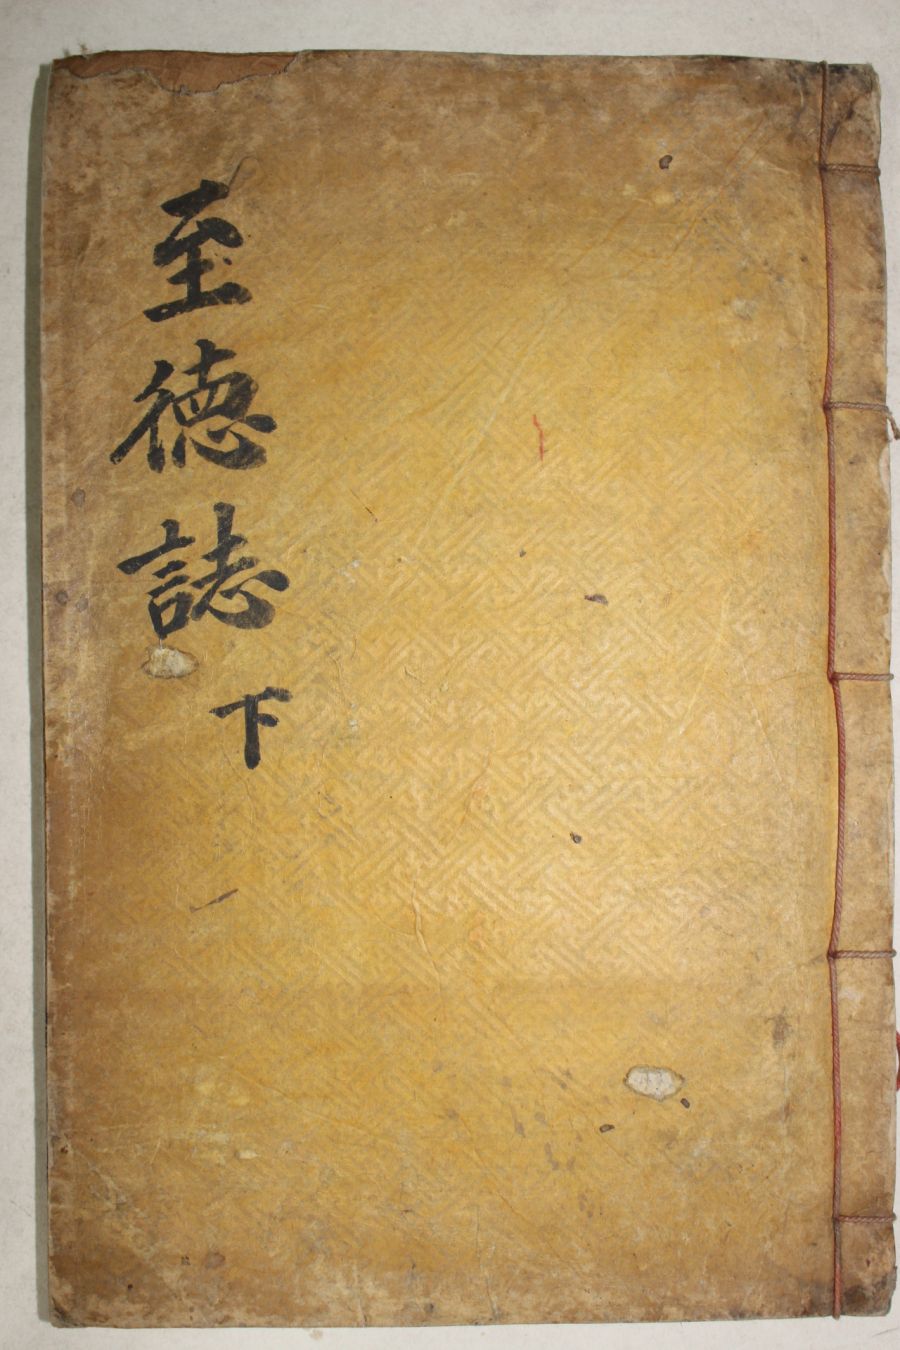 至德誌 下